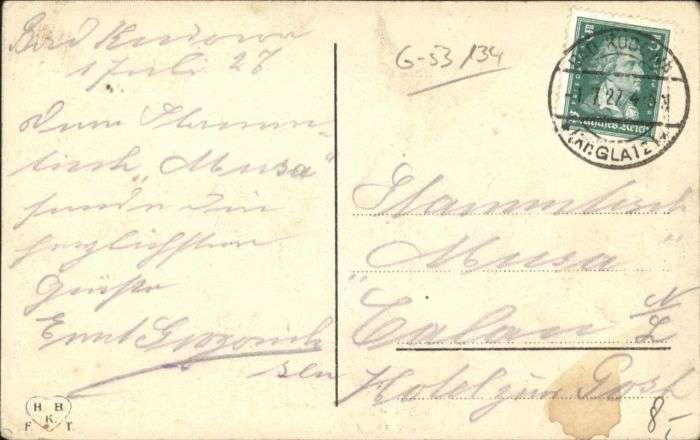 Bad Kudowa
1 Juli 27
Dem Stamm-
tisch „Musa“
sende die
herzlichsten
Grüße
Ernst
sen
G-53/34
5
BAD KUDOWA
1.7.27.4-5N
Deutsches Reich
(Kr. GLATZ)
Stammtisch
"Musa"
Calau N/L
Hotel zur Post
8,-
H B
K.
F. T.